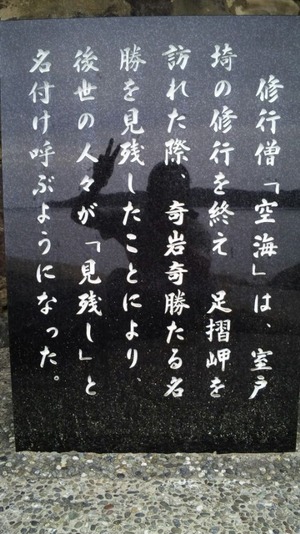 修行僧「空海」は、室戸
埼の修行を終え 足摺岬を
訪れた際、奇岩奇勝たる名
勝を見残したことにより、
後世の人々が「見残し」と
名付け呼ぶようになった。